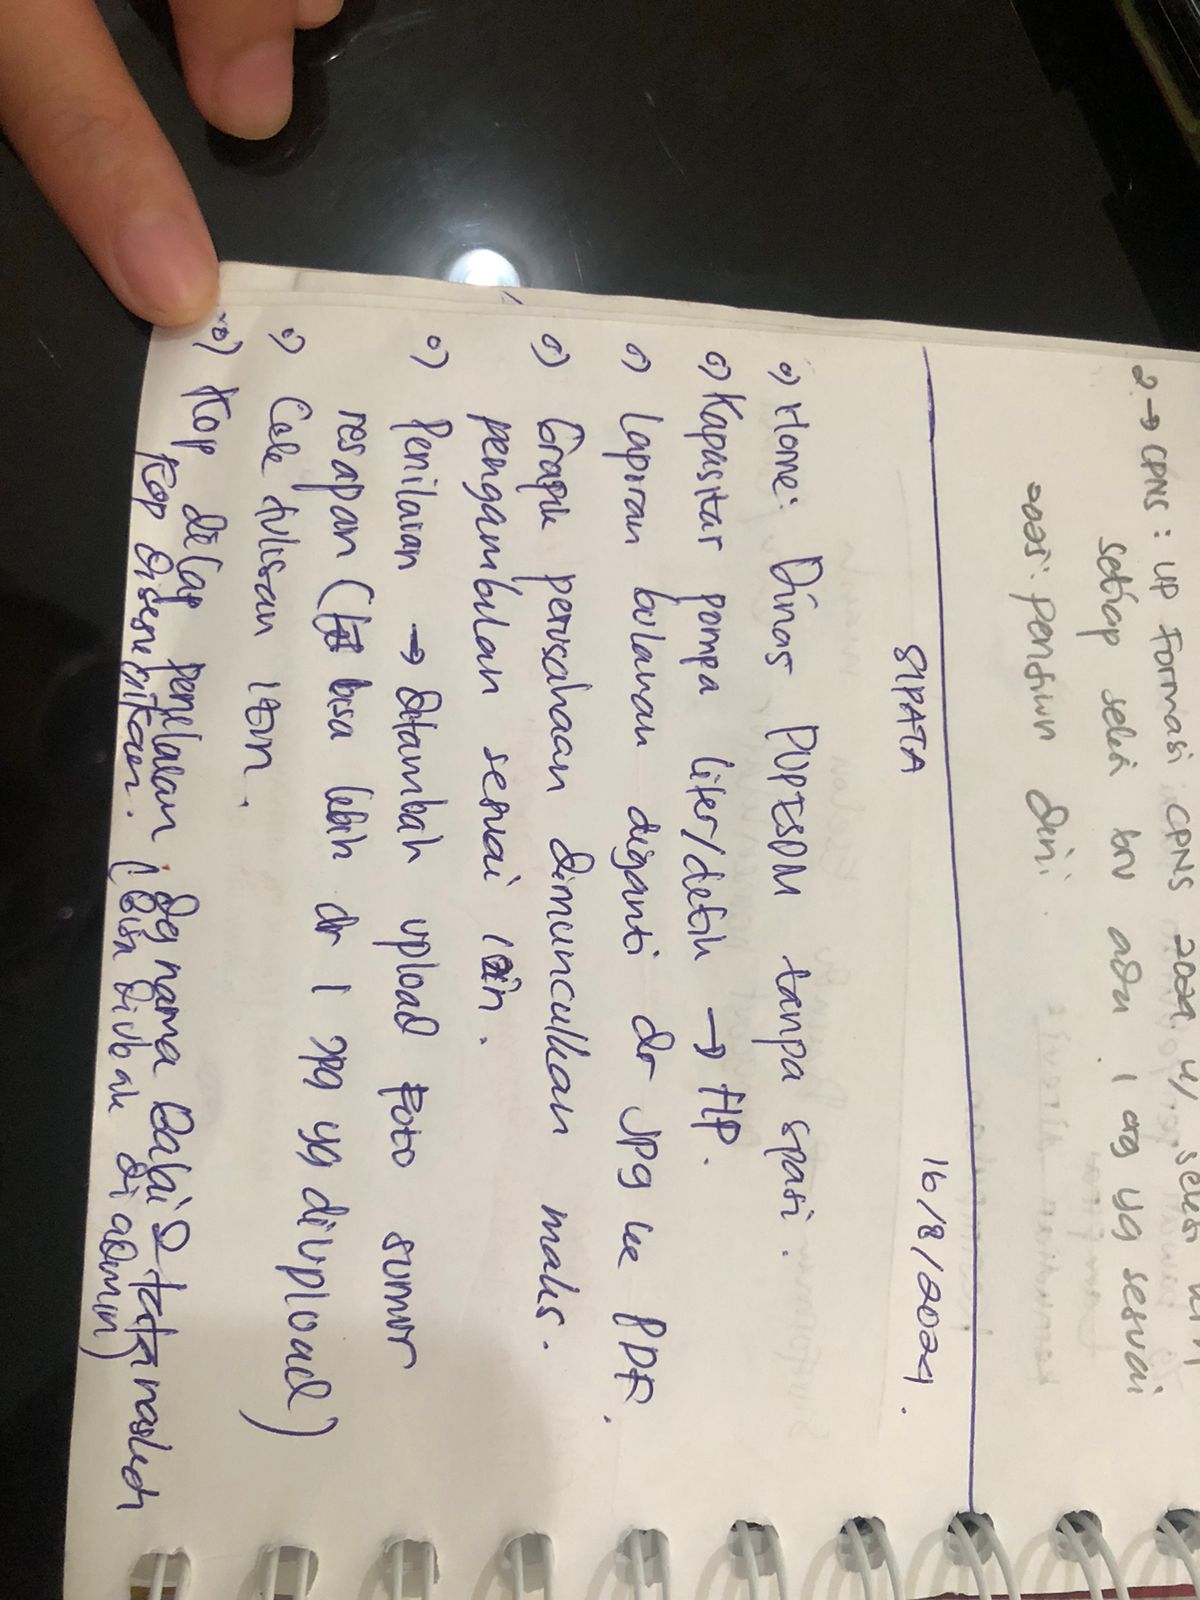 2 → CPNS : UP Formasi CPNS 2024 u/ seksi
setiap seksi bru ada 1 org yg sesuai
2025: pensiun dini.
SIPATA 16/8/2024.
o) Home: Dinas PUPESDM tanpa spasi.
o) Kapasitas pompa liter/detik → HP.
o) Laporan bulanan diganti dr JPG ke PDF.
o) Grapik perusahaan dimunculkan maks.
pengambilan sesuai izin.
o) Penilaian → ditambah upload Foto sumur
resapan ( bisa lebih dr 1 jpg yg diupload)
o) Cek tulisan izin.
o) Kop di lap penilaian. dg nama Balai & tata naskah
Kop disesuaikan. (bisa diubah di admin)